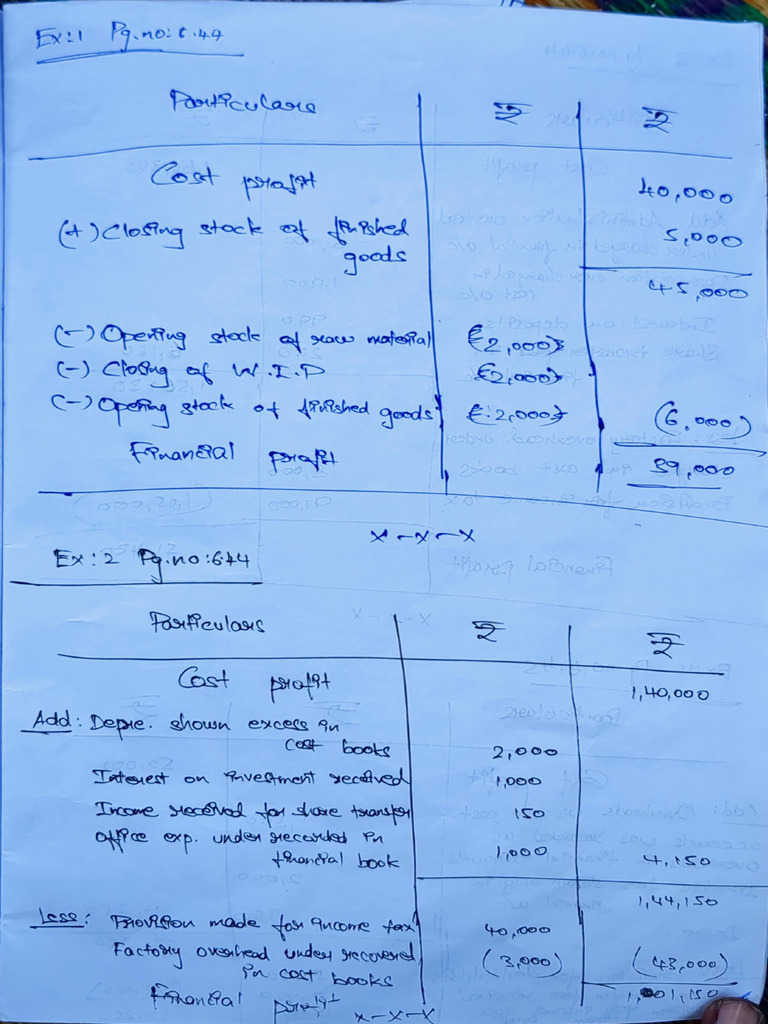 Ex:1 Pg.no:6.44
Particulars ₹ ₹
Cost profit 40,000
(+) Closing stock of finished 5,000
goods
45,000
(-) Opening stock of raw material {2,000}
(-) Closing of W.I.P {2,000}
(-) Opening stock of finished goods {2,000} (6,000)
Financial profit 39,000
x-x-x
Ex:2 Pg.no:6.44
Particulars ₹ ₹
Cost profit 1,40,000
Add: Depre. shown excess in
cost books 2,000
Interest on investment received 1,000
Income received for share transfer 150
office exp. under recorded in
financial book 1,000 4,150
1,44,150
Less: Provision made for income tax 40,000
Factory overhead under recovered (3,000) (43,000)
in cost books
Financial profit 1,01,150
x-x-x